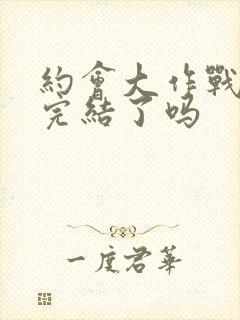 約會大作戰
完結了吗
一度君華